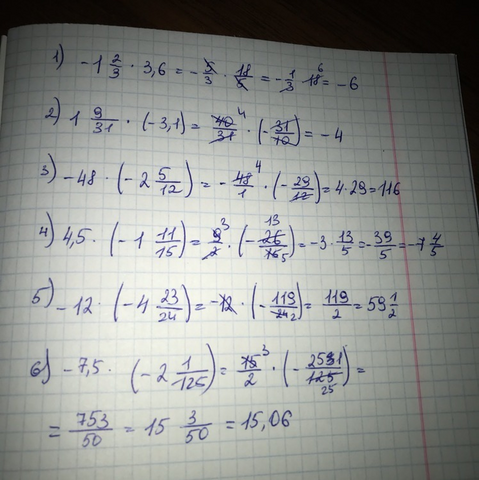 1) -1 2/3 · 3,6 = - 5/3 · 18/5 = - 1/3 18 6 = -6
2) 1 9/31 · (-3,1) = 40/31 4 · (- 31/10) = -4
3) -48 · (-2 5/12) = - 48/1 4 · (- 29/12) = 4 · 29 = 116
4) 4,5 · (-1 11/15) = 9/2 3 · (- 26/15 13 5) = -3 · 13/5 = - 39/5 = -7 4/5
5) -12 · (-4 23/24) = -12 · (- 119/24 2) = 119/2 = 59 1/2
6) -7,5 · (-2 1/125) = 15/2 3 · (- 251/125 25) =
= 753/50 = 15 3/50 = 15,06